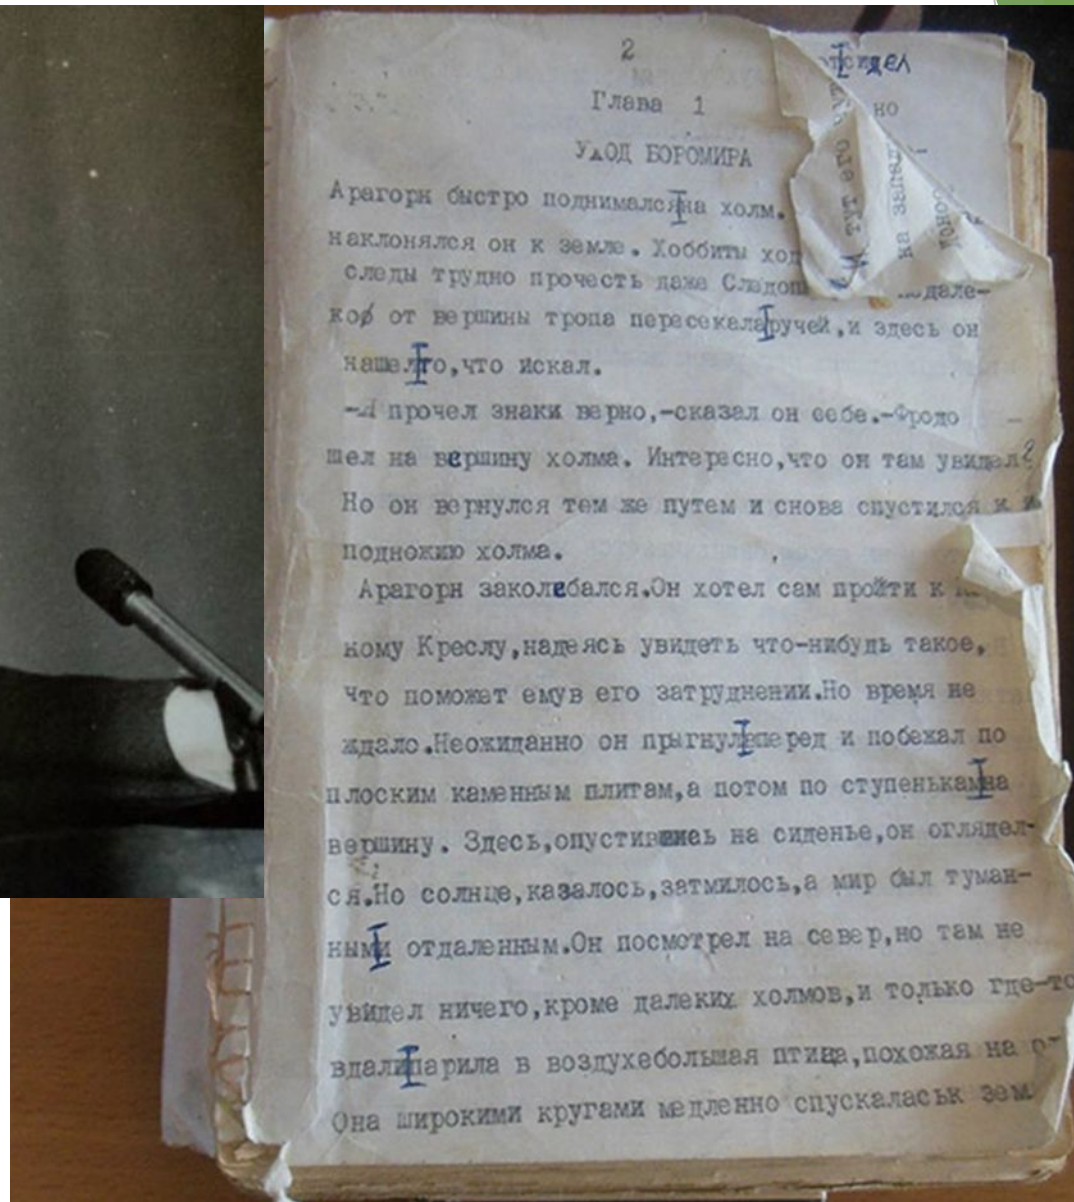 2
отсидел
Глава 1
но
УХОД БОРОМИРА
Арагорн быстро поднималсяна холм.
наклонялся он к земле. Хоббиты ход
следы трудно прочесть даже Следоп подале-
ко от вершины тропа пересекаларучей,и здесь он
нашелто,что искал.
-Я прочел знаки верно,-сказал он себе.-Фродо
шел на вершину холма. Интересно,что он там увидел?
Но он вернулся тем же путем и снова спустился к
подножию холма.
Арагорн заколебался.Он хотел сам пройти к
кому Креслу,надеясь увидеть что-нибудь такое,
что поможет емув его затруднении.Но время не
ждало.Неожиданно он прыгнулвперед и побежал по
плоским каменным плитам,а потом по ступенькамна
вершину. Здесь,опустившись на сиденье,он оглядел-
ся.Но солнце,казалось,затмилось,а мир был туман-
ными отдаленным.Он посмотрел на север,но там не
увидел ничего,кроме далеких холмов,и только где-то
вдалипарила в воздухебольшая птица,похожая на
Она широкими кругами медленно спускаласьк зем